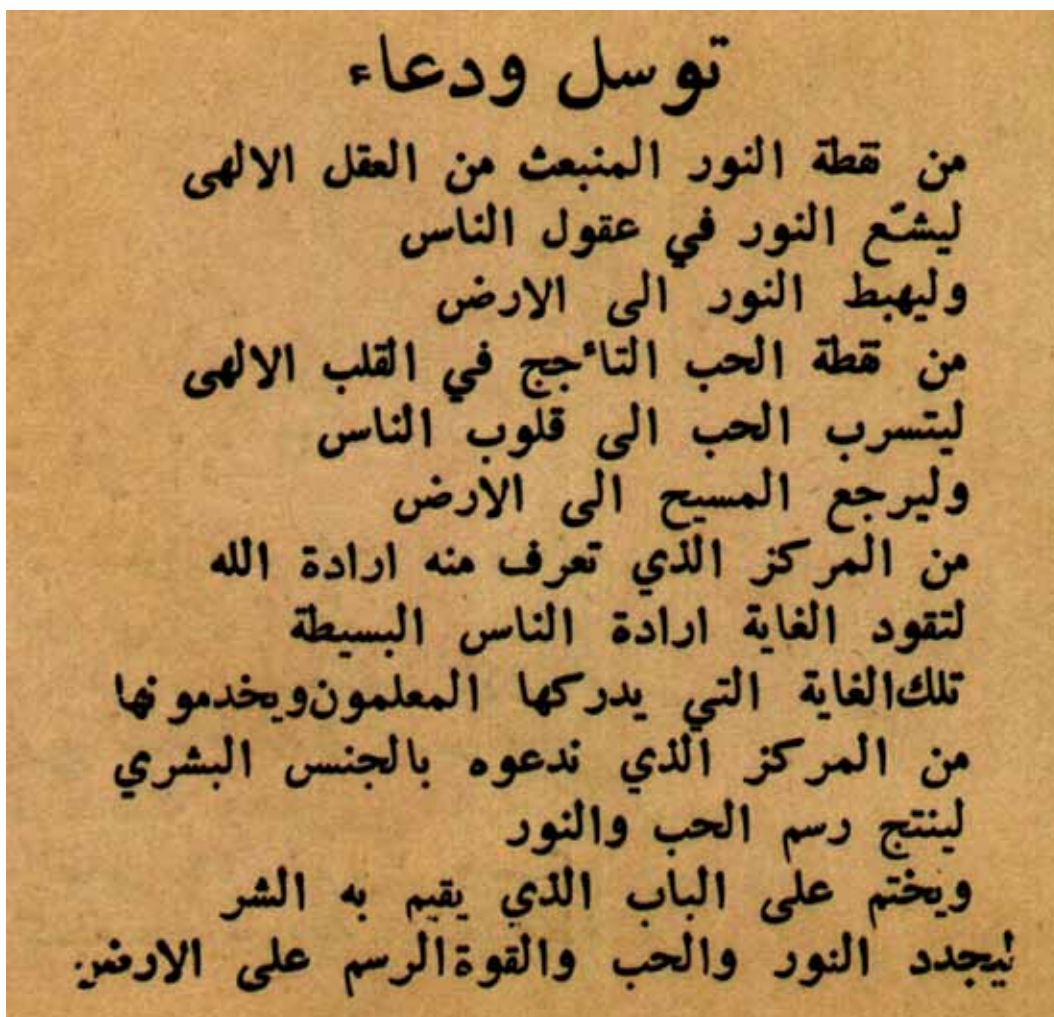 توسل ودعاء
من نقطة النور المنبعث من العقل الالهى
ليشّع النور في عقول الناس
وليهبط النور الى الارض
من نقطة الحب التأجج في القلب الالهى
ليتسرب الحب الى قلوب الناس
وليرجع المسيح الى الارض
من المركز الذي تعرف منه ارادة الله
لتقود الغاية ارادة الناس البسيطة
تلك الغاية التي يدركها المعلمون ويخدمونها
من المركز الذي ندعوه بالجنس البشري
لينتج رسم الحب والنور
ويختم على الباب الذي يقيم به الشر
ليجدد النور والحب والقوة الرسم على الارض.